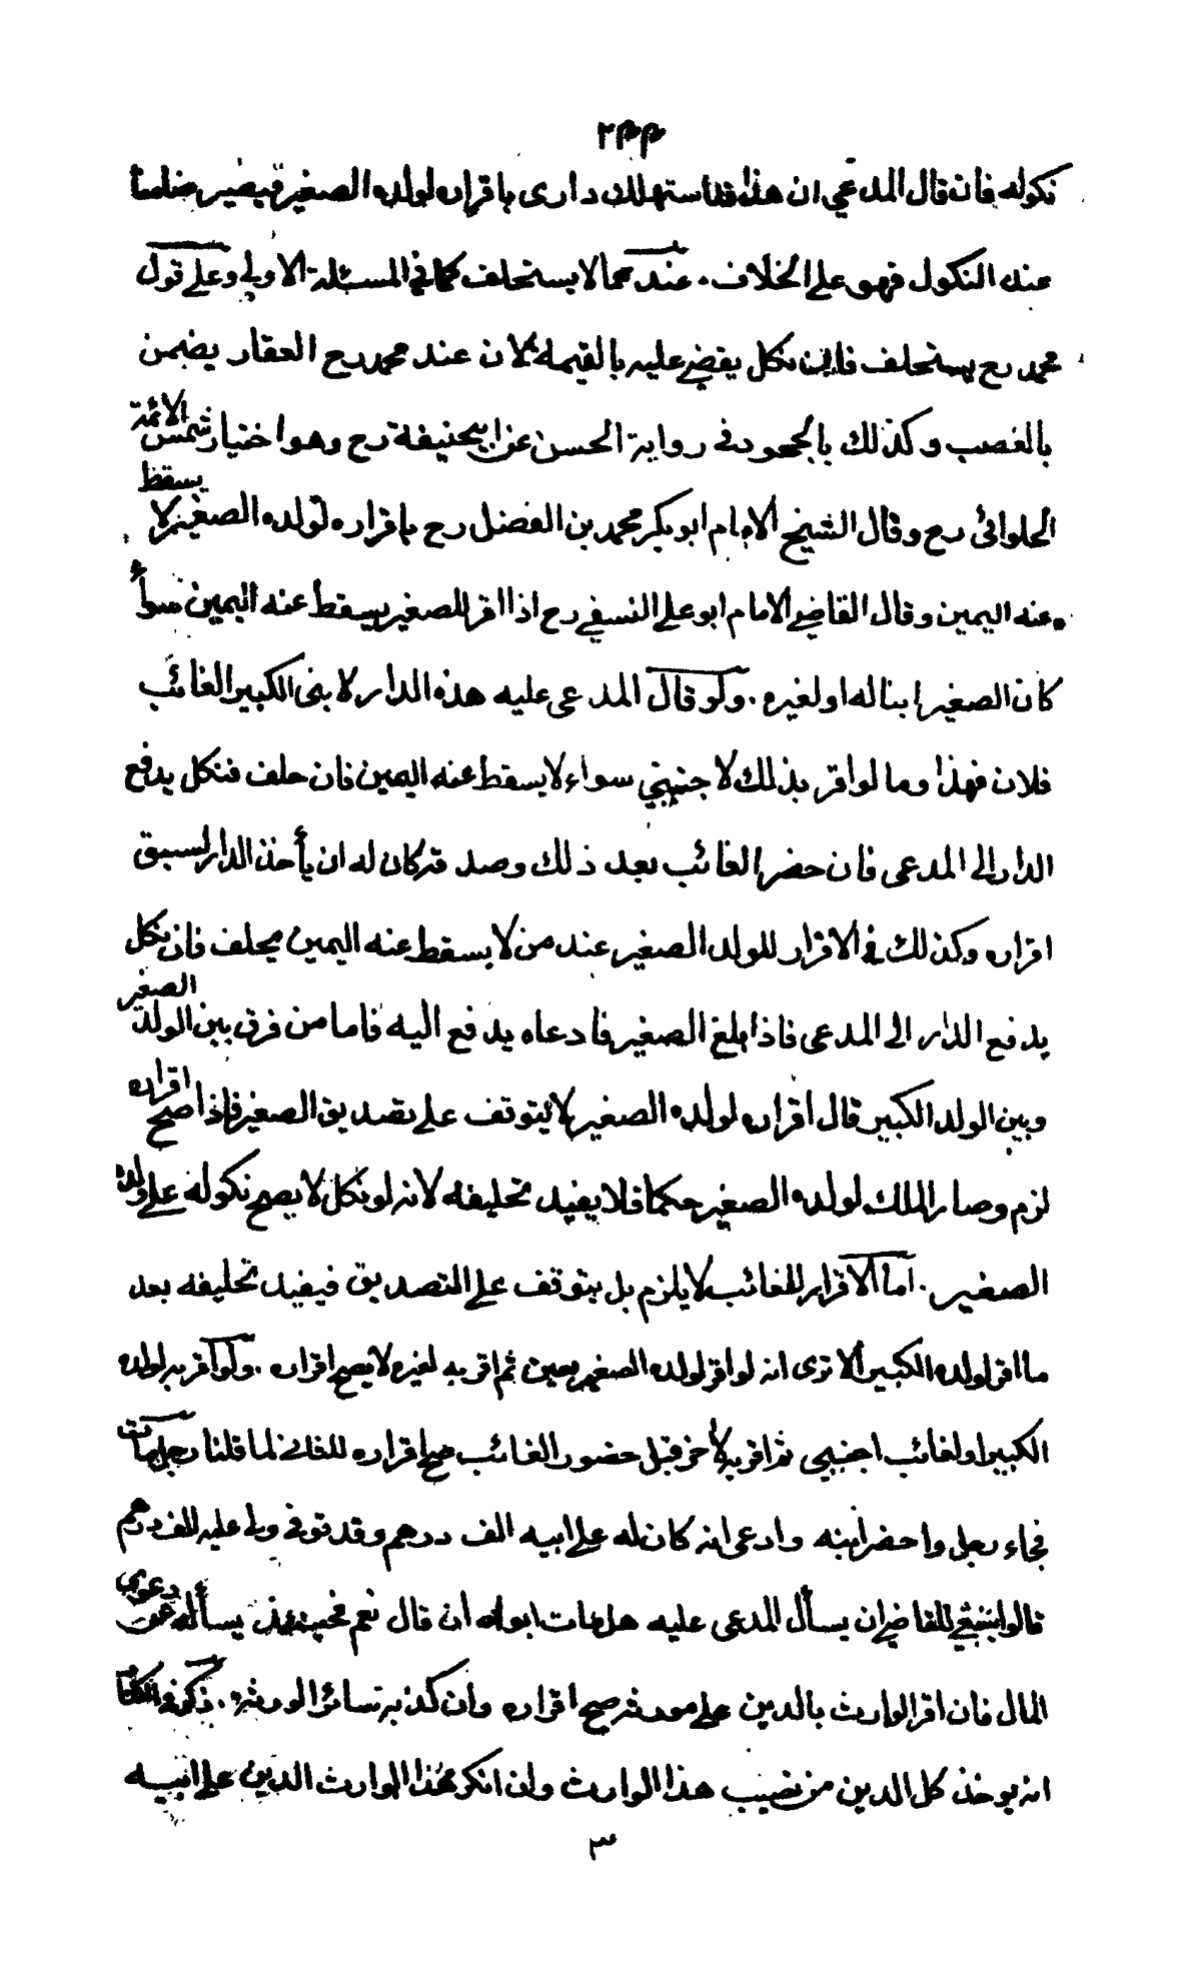 ٢٣٣
نكوله فان قال المدعي ان هذا قد استهلك دارى باقراره لولده الصغير فيصير ضامنا
عند النكول فهو على الخلاف. عندهما لا يستحلف كما في المسئلة الاولى وعلى قول
محمد رح يستحلف فان نكل يقضي عليه بالقيمة لان عند محمد رح العقار يضمن
بالغصب وكذلك بالجحود في رواية الحسن عن ابيحنيفة رح وهو اختيار شمس الائمة
الحلوائى رح وقال الشيخ الامام ابو بكر محمد بن الفضل رح باقراره لولده الصغير لا يسقط
عنه اليمين وقال القاضي الامام ابو علي النسفي رح اذا اقر للصغير يسقط عنه اليمين سواء
كان الصغير ابنا له او لغيره. ولو قال المدعى عليه هذه الدار لابنى الكبير الغائب
فلان فهذا وما لو اقر بذلك لاجنبي سواء لا يسقط عنه اليمين فان حلف فنكل يدفع
الدار الى المدعى فان حضر الغائب بعد ذلك وصدقه كان له ان يأخذ الدار لسبق
اقراره وكذلك في الاقرار للولد الصغير عند من لا يسقط عنه اليمين يحلف فان نكل
يدفع الدار الى المدعى فاذا بلغ الصغير فادعاه يدفع اليه فاما من فرق بين الولد الصغير
وبين الولد الكبير قال اقراره لولده الصغير لا يتوقف على تصديق الصغير فاذا صح اقراره
لزم وصار الملك لولده الصغير حكما فلا يفيد تحليفه لانه لو نكل لا يصح نكوله على ولده
الصغير. اما الاقرار للغائب لا يلزم بل يتوقف على التصديق فيفيد تحليفه بعد
ما اقر لولده الكبير الا ترى انه لو اقر لولده الصغير بعين ثم اقر به لغيره لا يصح اقراره. ولو اقر به لولده
الكبير او لغائب اجنبى ثم اقر به لآخر قبل حضور الغائب صح اقراره للثانى لما قلنا رجل مات
فجاء رجل واحضر ابنه وادعى انه كان له على ابيه الف درهم وقد توفى ولى عليه الف درهم
قالوا ينبغي للقاضي ان يسأل المدعى عليه هل مات ابوك ان قال نعم فحينئذ يسأله عن دعوى
المال فان اقر الوارث بالدين على مورثه صح اقراره وان كذبه سائر الورثة. ذكر في الكتاب
انه يوخذ كل الدين من نصيب هذا الوارث وان انكر هذا الوارث الدين على ابيه
٣